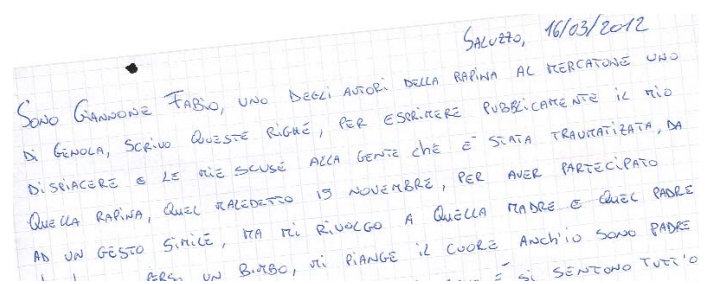 SALUZZO, 16/03/2012
SONO GIANNONE FABIO, UNO DEGLI AUTORI DELLA RAPINA AL MERCATONE UNO
DI GENOLA, SCRIVO QUESTE RIGHE, PER ESPRIMERE PUBBLICAMENTE IL MIO
DISPIACERE E LE MIE SCUSE ALLA GENTE CHE E' STATA TRAUMATIZATA, DA
QUELLA RAPINA, QUEL MALEDETTO 19 NOVEMBRE, PER AVER PARTECIPATO
AD UN GESTO SIMILE, MA MI RIVOLGO A QUELLA MADRE E QUEL PADRE
PERSO UN BIMBO, MI PIANGE IL CUORE ANCH'IO SONO PADRE
E SI SENTONO TUTT'O